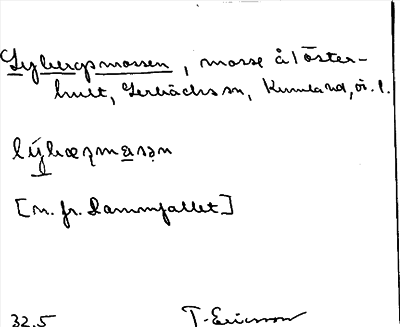 Lybergsmossen, mosse å l Öster-
hult, Lerbäcks sn, Kumla hd, ör. l.
lýbærmasən
[n. fr. Rammfallet]
32.5 T. Ericsson